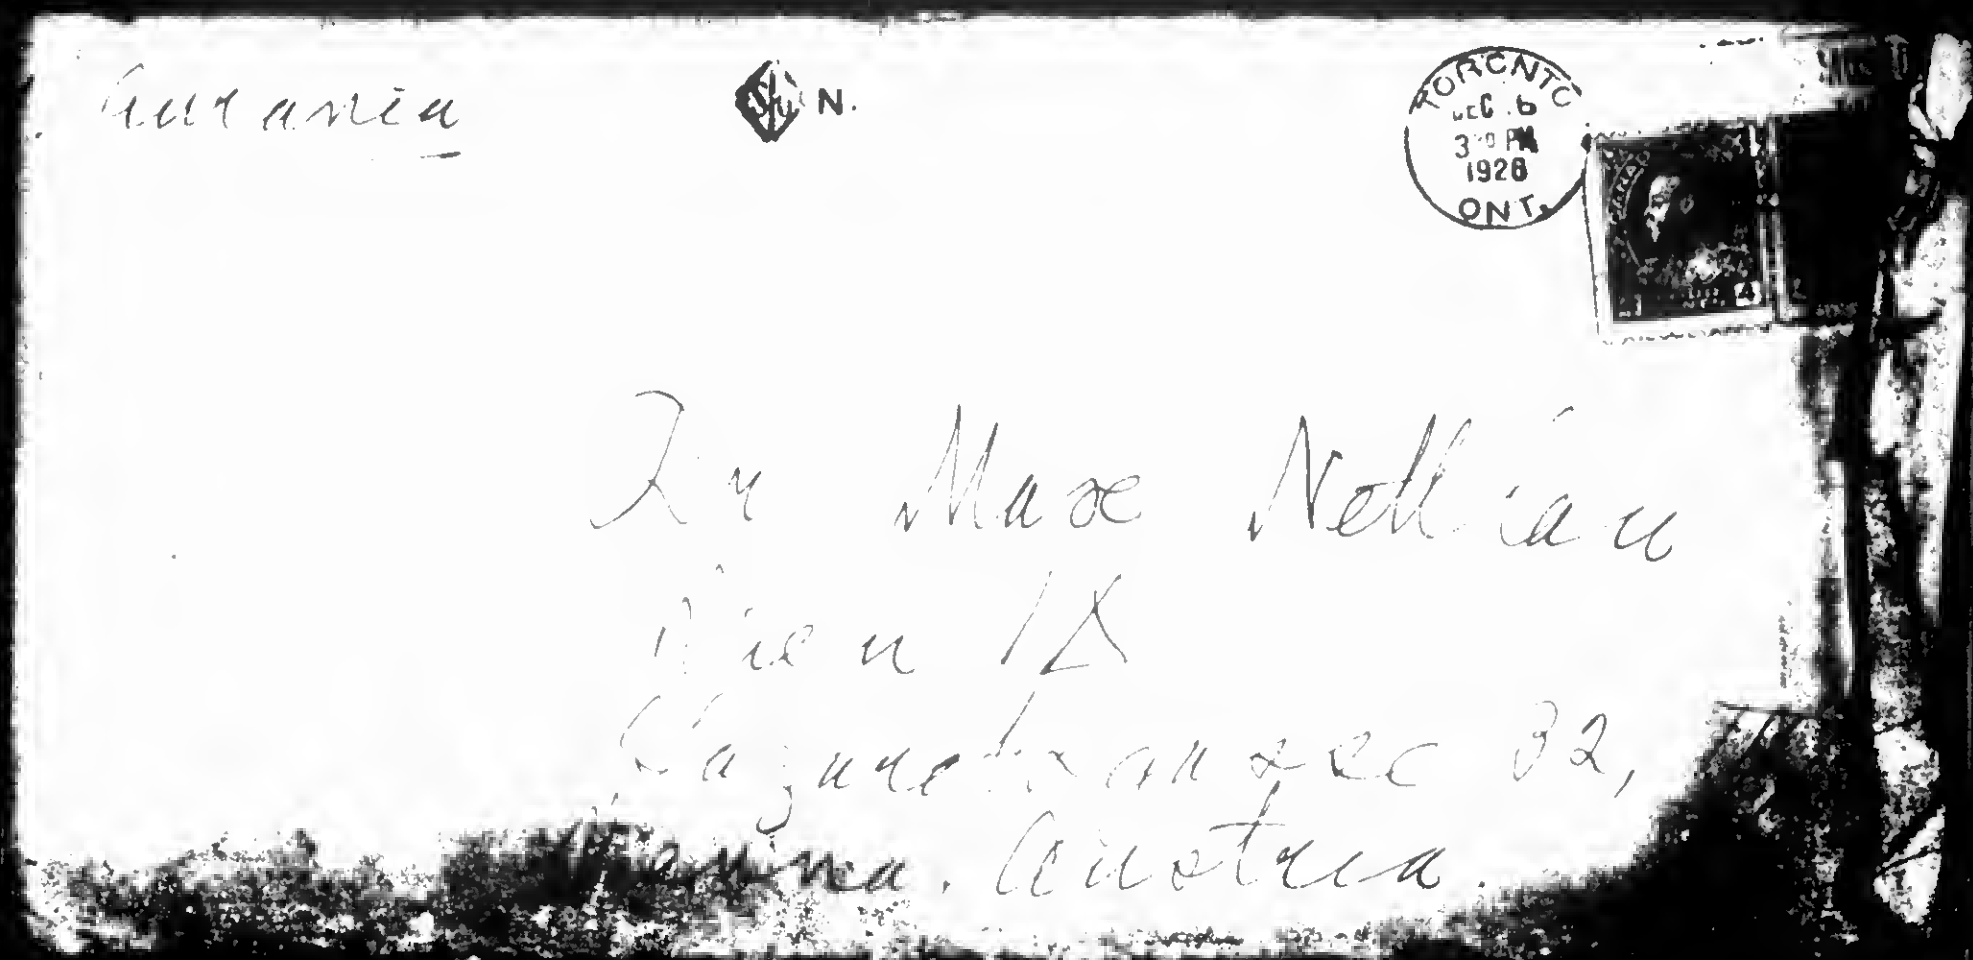 Aurania
N.
TORONTO
DEC 6
3 PM
1928
ONT.
Dr Max Nettlau
Wien IX
Lazarethgasse 32,
Vienna. Austria.